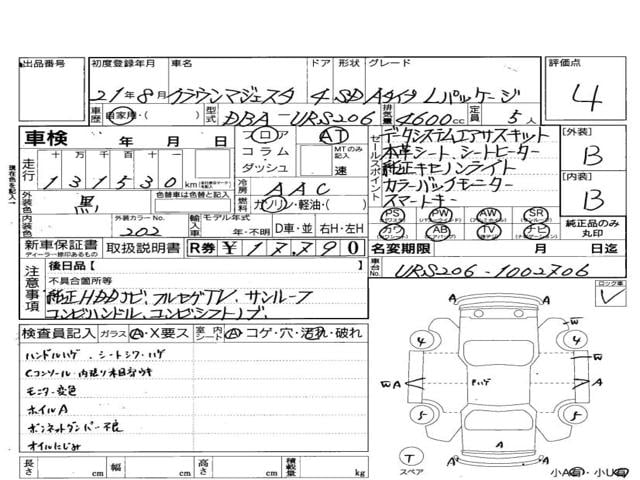 出品番号 初度登録年月 車名 ドア 形状 グレード 評価点
21年8月 クラウンマジェスタ 4 SD Aタイプ Lパッケージ 4
車歴 自家用・( ) 型式 DBA-URS206 排気量 4600cc 定員 5人
車検 年 月 日 フロア AT
走行 十万 万 千 百 十 一
131530 km
コラム MTのみ記入
ダッシュ 速
セールスポイント
データシステムエアサスキット
本革シート、シートヒーター
純正キセノンライト
カラーバックモニター
スマートキー
[外装] B
[内装] B
現在色を記入
外装色 黒 色替車は元色と記入
冷房 AAC
燃料 ガソリン・軽油・( )
PS PW AW SR
カワ AB TV ナビ
純正品のみ丸印
内装色 外装カラーNo. 202
輸入車 モデル年式 年・不明 D車・並 右H・左H
新車保証書 ディーラー捺印あるもの 取扱説明書 R券 ¥17,790
名変期限 月 日迄
車台No. URS206-1002706
注意事項
後日品[ ]
不具合箇所等
純正HDDナビ、フルセグTV、サンルーフ
コンビハンドル、コンビシフトノブ、
ロック車 レ
検査員記入 ガラス A・X要ス 室内シート A・コゲ・穴・汚れ・破れ
ハンドルハゲ、シートシワ・ハゲ
Cコンソール・内張り木目部ウキ
モニター変色
ホイルA
ボンネットダンパー不良
オイルにじみ
4 4 W
W A A A
5 5
A
T スペア
A A
小A有・小U有
長さ cm 幅 cm 高さ cm 積載量 kg